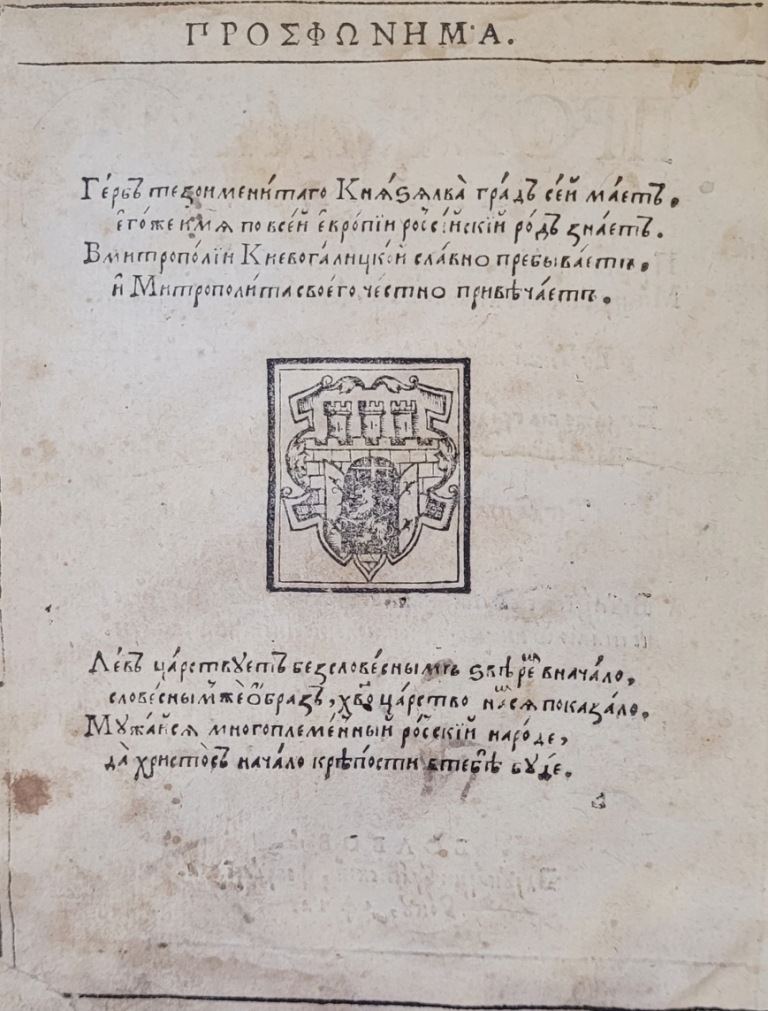 ПРОСФΩΝΗΜΑ.
Ге́рбъ тезоимени́таго Кнѧ́ѕѧ лва̀ гра́дъ се́й ма́етъ.
є҆го́же и҆мѧ по все́й є҆вро́пїи росі́йскїй ро́дъ зна́етъ.
В митропо́лїи Києвога́лицкой сла́вно пребыва́етъ.
и҆ Митрополи́та своего̀ че́стно приви́ча́етъ.
Ле́въ ца́рствꙋетъ безслове́снымъ ѕвѣре́ⷨ в нача́ло,
слове́сныⷨ же ѡ҆́бразъ, хв҃о ца́рство наⷨ сѧ показа́ло.
Мꙋжа́йсѧ многоплеме́нный ро́сскїй наро́де,
да̀ христо́съ нача́ло крѣ́пости в тебѣ̀ бꙋ́де.